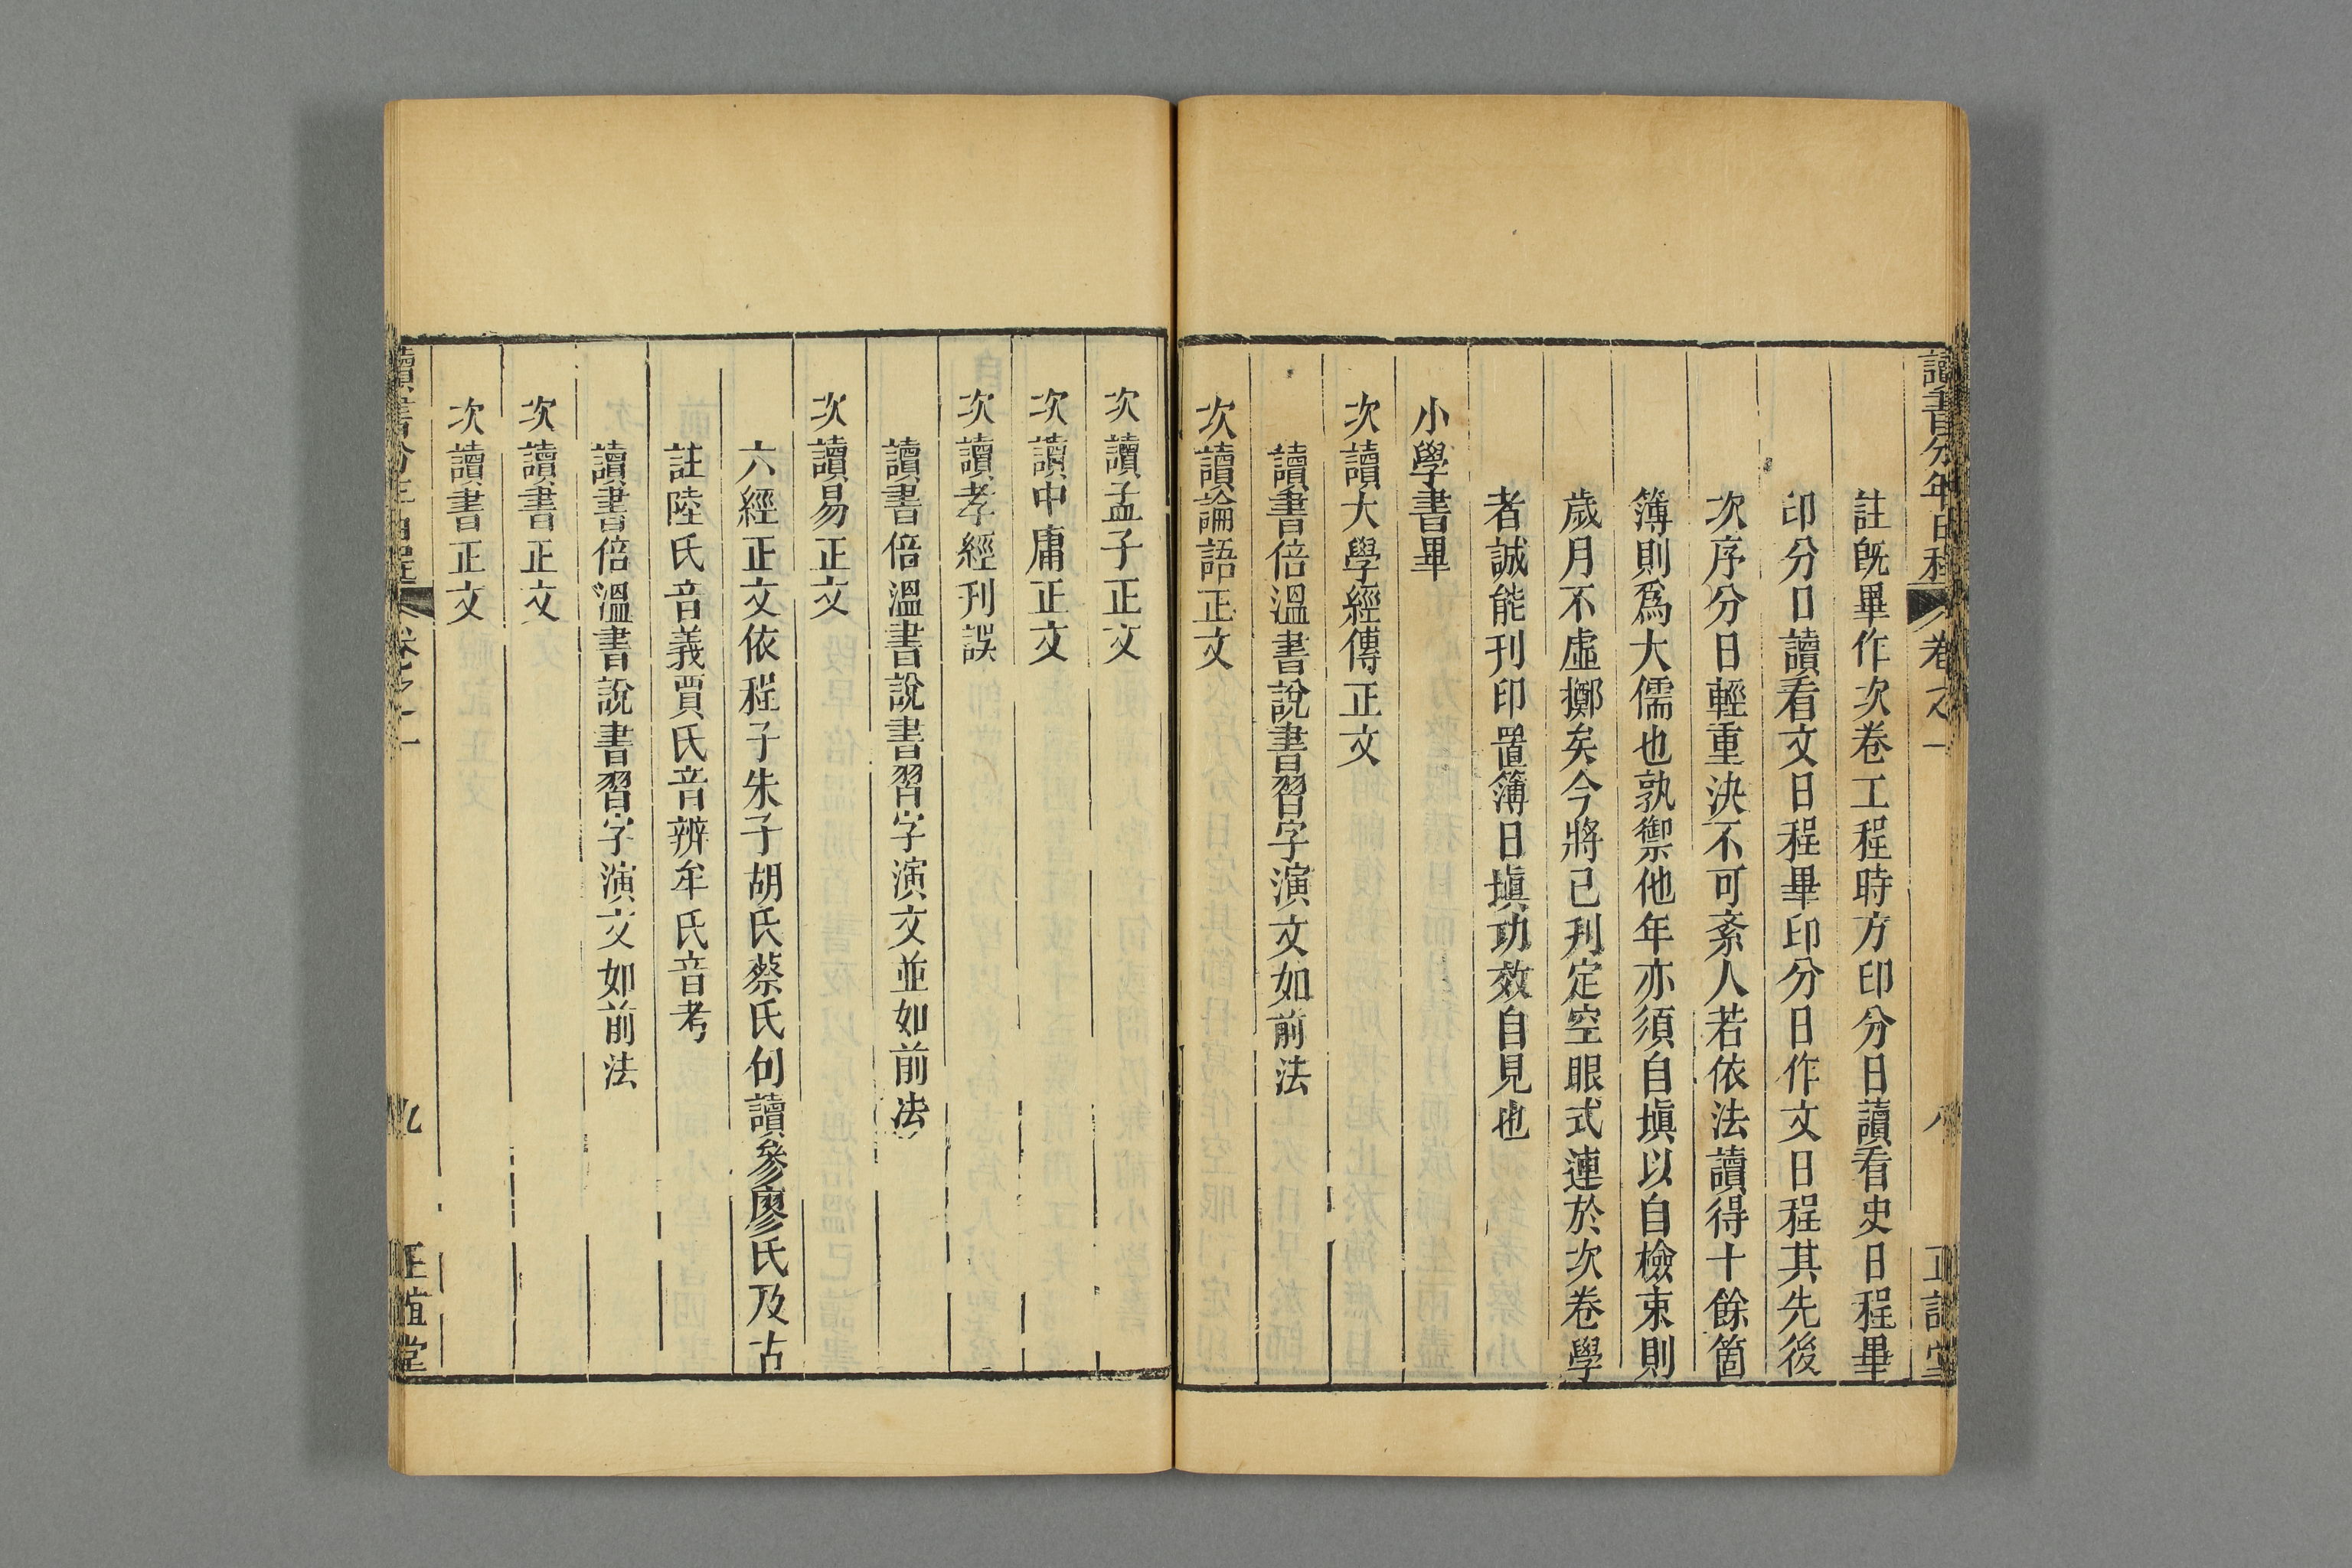 讀書分年日程 卷之一 八 正誼堂
註旣畢作次卷工程時方印分日讀看史日程畢
印分日讀看文日程畢印分日作文日程其先後
次序分日輕重決不可紊人若依法讀得十餘箇
簿則爲大儒也孰禦他年亦須自塡以自檢束則
歲月不虛擲矣今將已刋定空眼式連於次卷學
者誠能刋印置簿日塡功效自見也
小學書畢
次讀大學經傳正文
讀書倍溫書說書習字演文如前法
次讀論語正文
次讀孟子正文
次讀中庸正文
次讀孝經刋誤
讀書倍溫書說書習字演文並如前法
次讀易正文
六經正文依程子朱子胡氏蔡氏句讀參廖氏及古
註陸氏音義賈氏音辨牟氏音考
讀書倍溫書說書習字演文如前法
次讀書正文
次讀書正文
讀書分年日程 卷之一 九 正誼堂